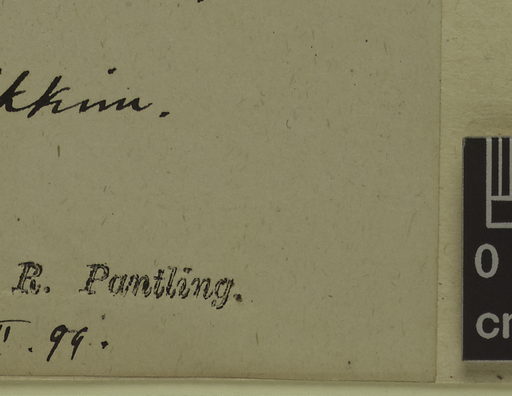 kkim.
R. Pantling.
II. 99.
0
cm